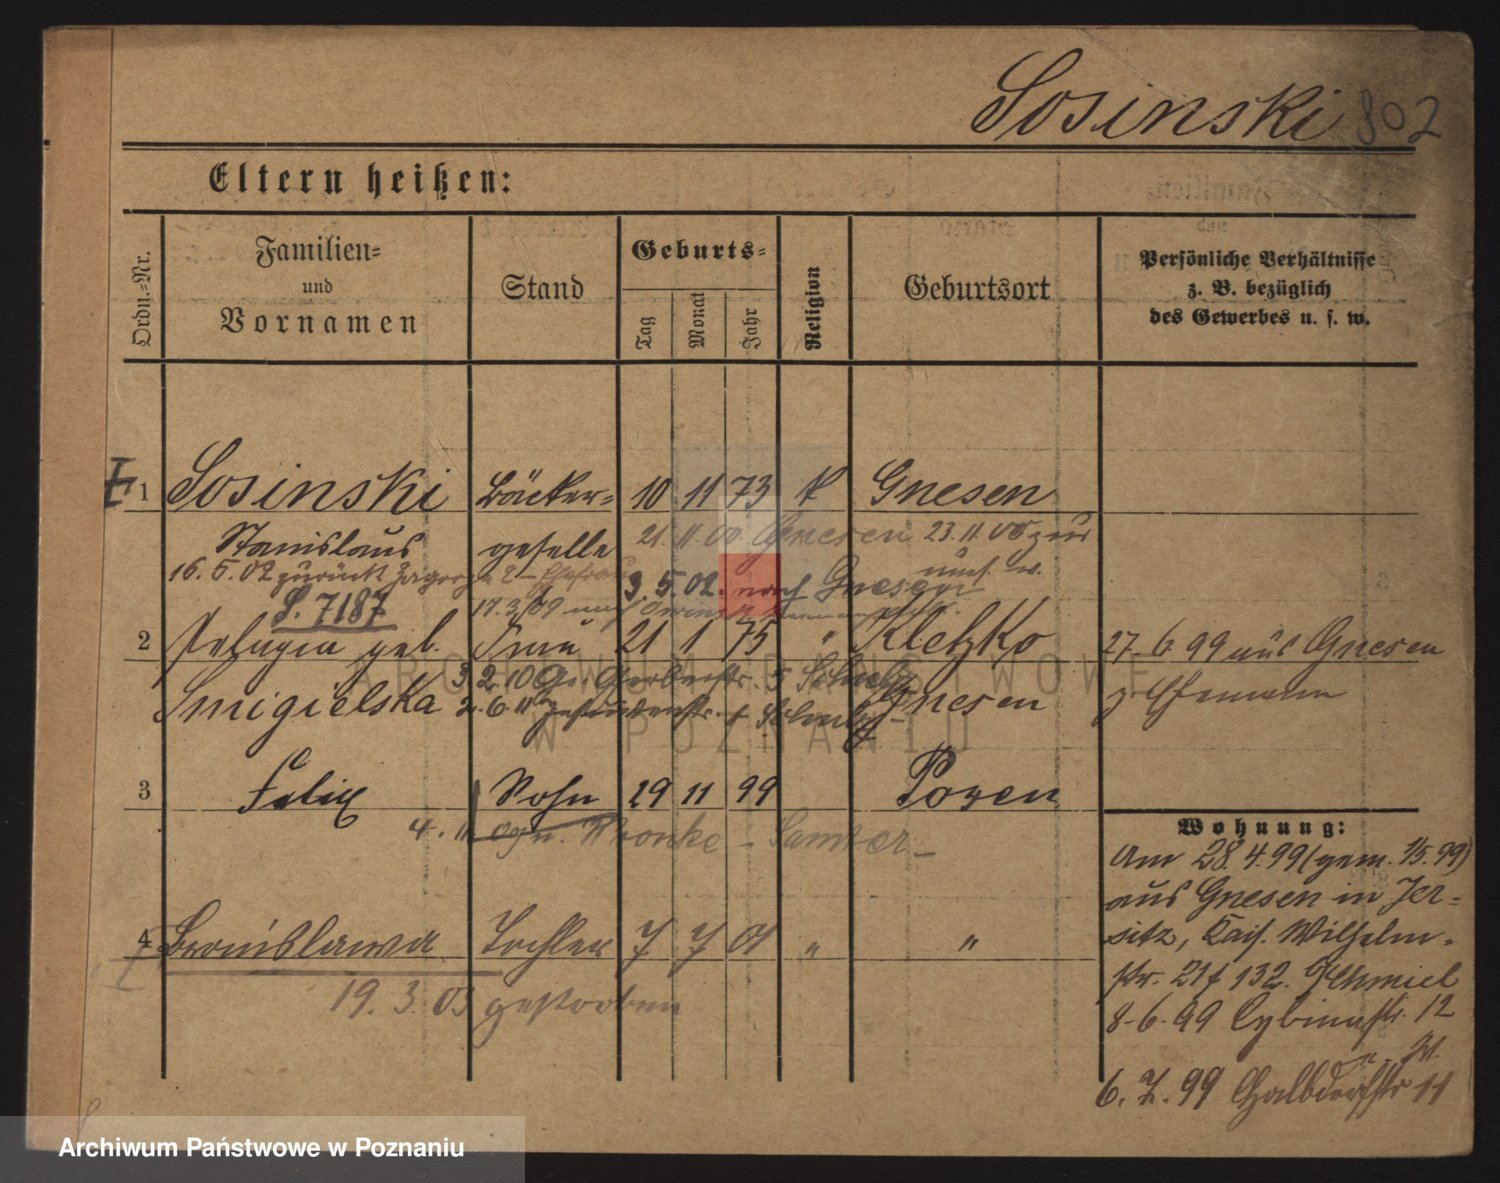 Sosinski 802
Eltern heißen:
Ordn.-Nr.
Familien-
und
Vornamen
Stand
Geburts-
Tag
Monat
Jahr
Religion
Geburtsort
Persönliche Verhältnisse
z. B. bezüglich
des Gewerbes u. s. w.
1 Sosinski Bäcker- 10 11 73 k Gnesen
Stanislaus geselle 21. 11. 00 Gnesen 23. 11. 00 zur
16. 5. 02 zurück
3. 5. 02. nach Gnesen
S. 7187
17. 3. 09 nach
2 Pelagia geb. Frau 21 1 75 " Kletzko 27. 6. 99 aus Gnesen
3. 2. 10 Gr. Gerberstr. 5
Smigielska Gnesen z. Ehemann
2. 6. 11
3 Felix Sohn 29 11 99 Posen
4. 11. Wronke - Samter -
Wohnung:
Am 28. 4. 99 (gem. 1/5. 99)
aus Gnesen in Jer-
sitz, Kais. Wilhelm-
str. 21 f 132. Chmiel
8. 6. 99 Cybinastr. 12
6. 7. 99 Halbdorfstr 11
4 Bronislawa Tochter 7 7 01 " "
19. 3. 03 gestorben
ARCHIWUM PAŃSTWOWE
W POZNANIU
Archiwum Państwowe w Poznaniu